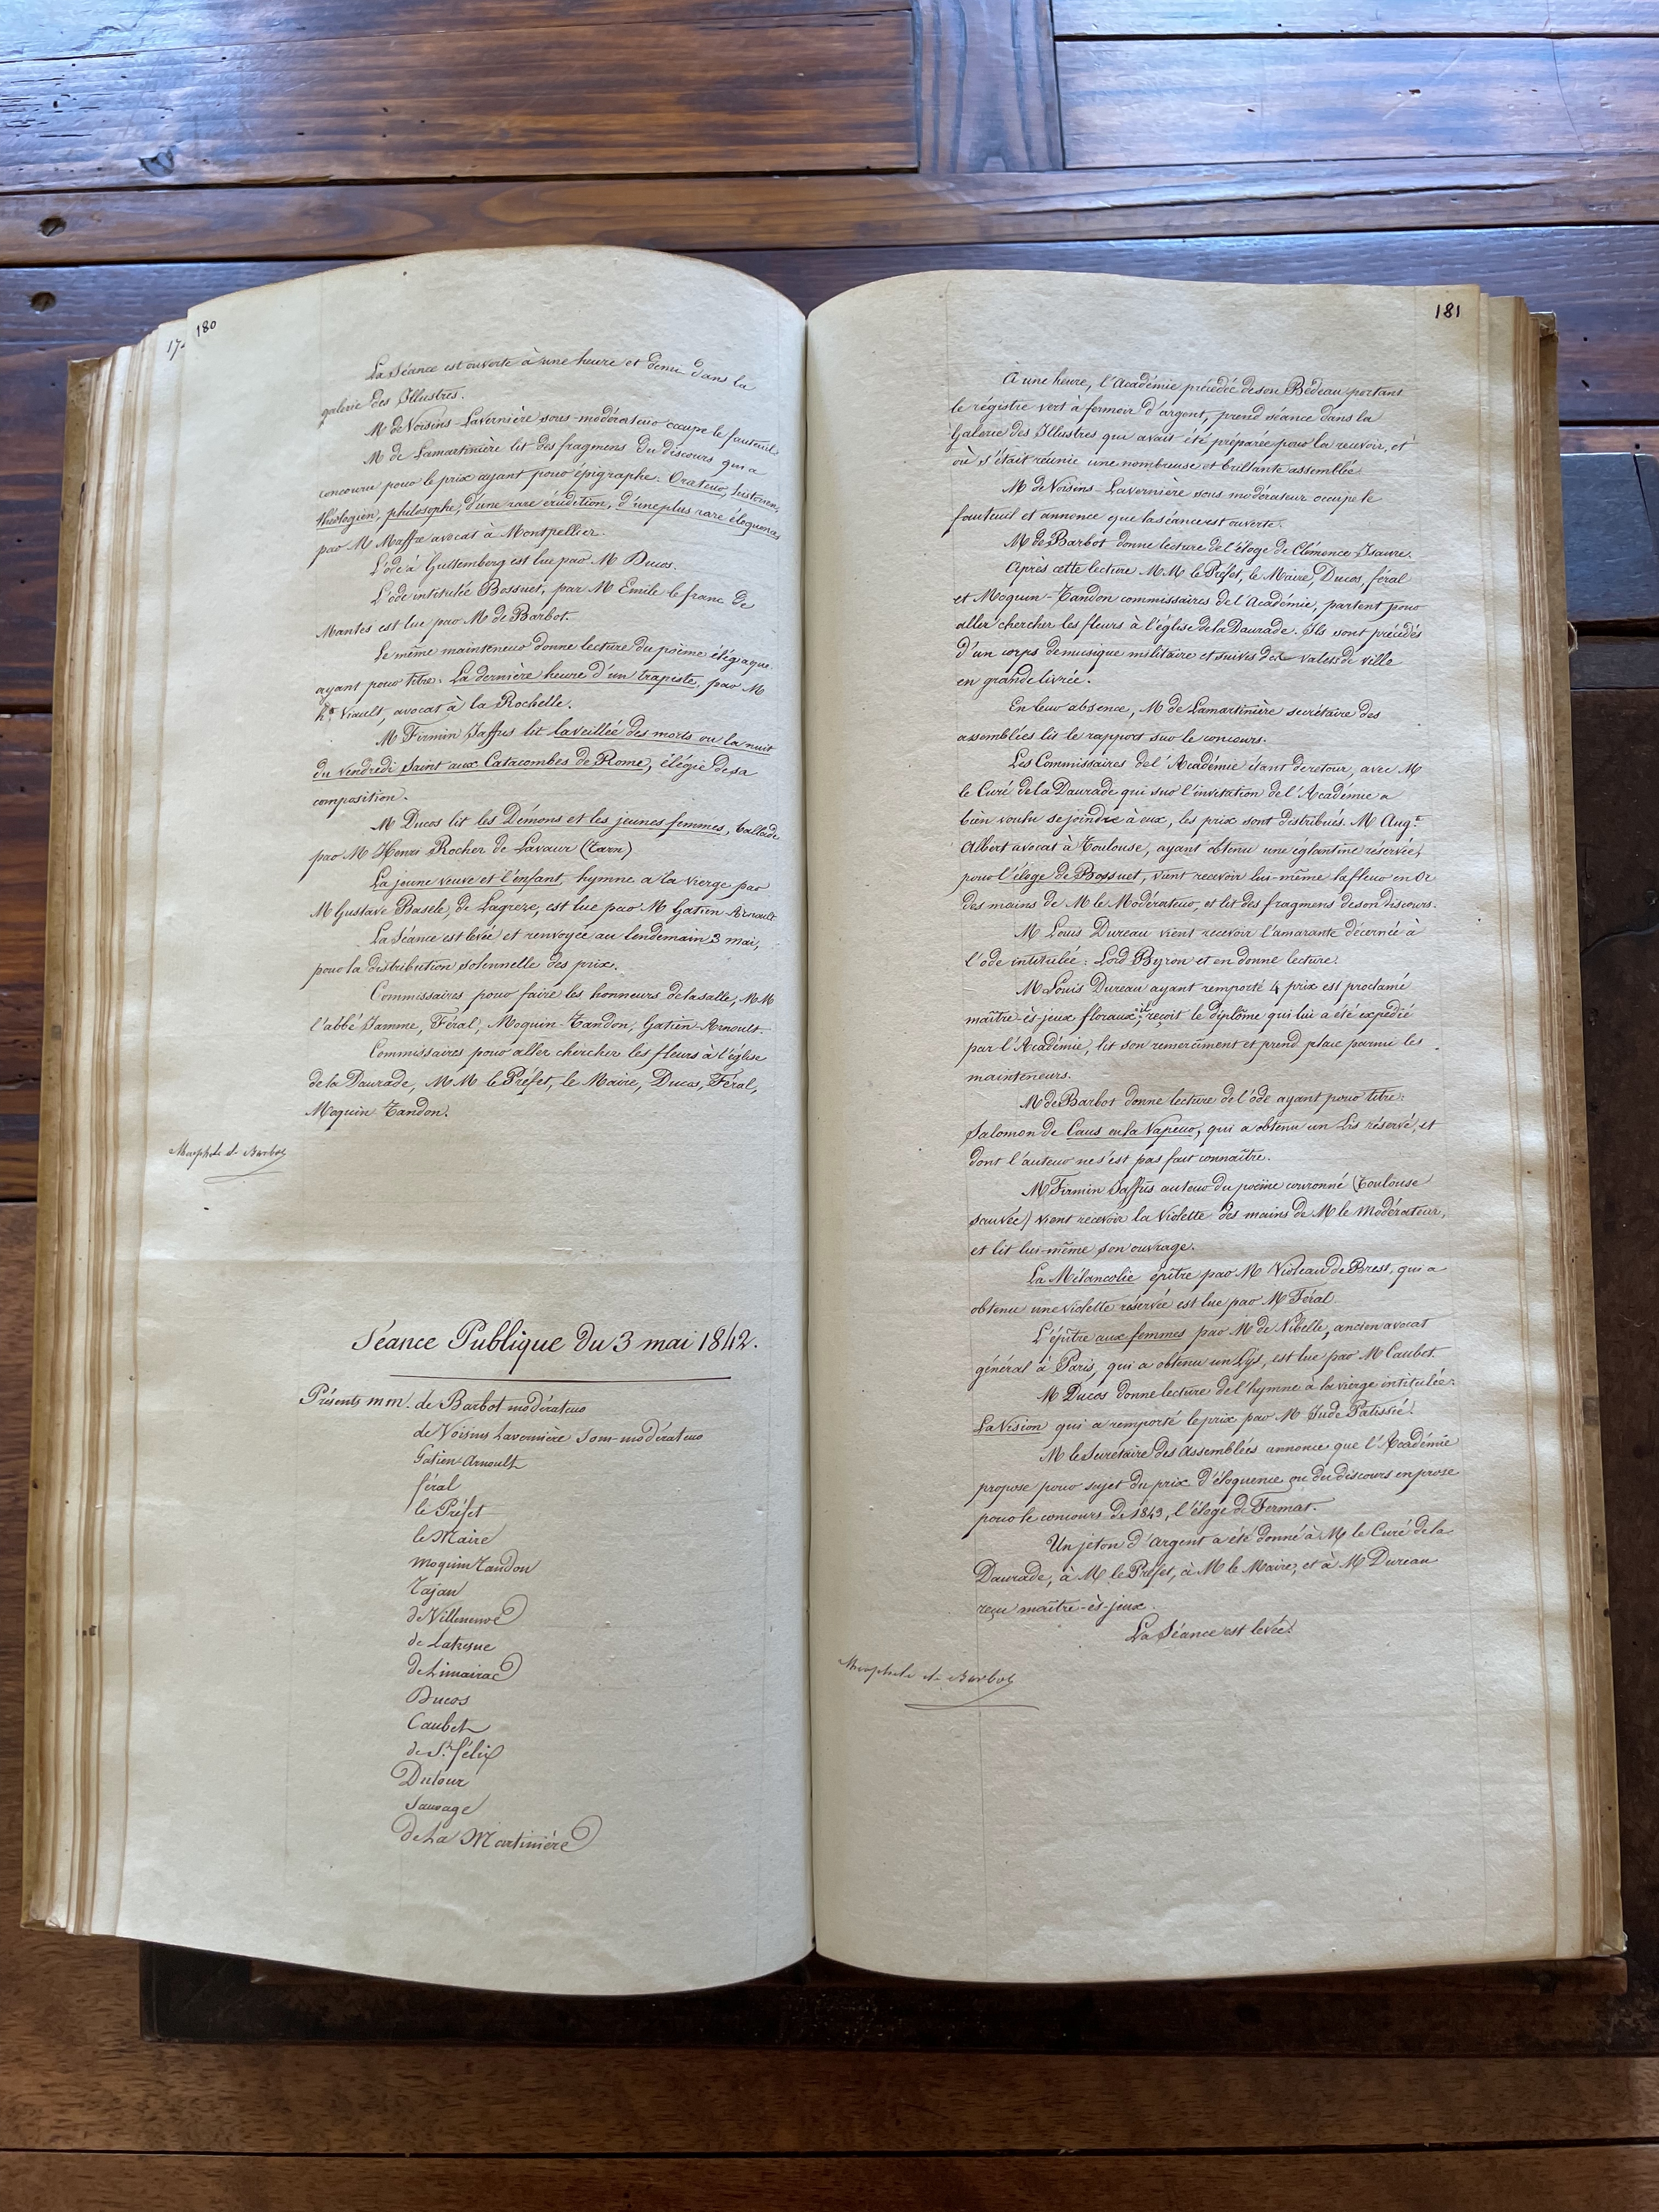 17
180
La Séance est ouverte à une heure et demie dans la
galerie des Illustres.
M de Voisins-Lavernière sous-modérateur occupe le fauteuil.
M de Lamartinière lit des fragmens du discours qui a
concouru pour le prix ayant pour épigraphe: Orateur, historien,
théologien, philosophe, d'une rare érudition, d'une plus rare éloquence,
par M Maffre avocat à Montpellier.
L'ode à Guttemberg est lue par M Ducos.
L'ode intitulée Bossuet, par M Emile le franc de
Mantes est lue par M de Barbot.
Le même mainteneur donne lecture du poëme élégiaque
ayant pour titre: La dernière heure d'un trapiste, par M
hte Viault, avocat à la Rochelle.
M Firmin Jaffus lit la veillée des morts ou la nuit
du Vendredi Saint aux Catacombes de Rome, élégie de sa
composition.
M Ducos lit les Démons et les jeunes femmes, ballade
par M Henri Rocher de Lavaur (Tarn)
La jeune veuve et l'enfant, hymne a la vierge par
M Gustave Basele, de Lagreze, est lue par M Gatien-Arnoult
La Séance est levée et renvoyée au lendemain 3 mai,
pour la distribution solennelle des prix.
Commissaires pour faire les honneurs de la salle, MM
l'abbé Jamme, Féral, Moquin-Tandon, Gatien-Arnoult.
Commissaires pour aller chercher les fleurs à l'église
de la Daurade, MM le Préfet, le Maire, Ducos, Féral,
Moquin Tandon.
de Barbot
Séance Publique du 3 mai 1842.
Présents mm. de Barbot modérateur
de Voisins Lavernière Sous-modérateur
Gatien-Arnoult
féral
le Préfet
le Maire
moquin Tandon
Tajan
de Villeneuve
de Latresne
de Limairac
Ducos
Caubet
de St félix
Dutour
Sauvage
de La Martinière
181
À une heure, l'Académie précédée de son Bedeau portant
le régistre vert à fermoir d'argent, prend séance dans la
Galerie des Illustres qui avait été préparée pour la recevoir, et
où s'était réunie une nombreuse et brillante assemblée.
M de Voisins-Lavernière sous modérateur occupe le
fauteuil et annonce que la séance est ouverte.
M de Barbot donne lecture de l'éloge de Clémence-Isaure.
Après cette lecture MM le Préfet, le Maire, Ducos, féral
et Moquin-Tandon commissaires de l'Académie, partent pour
aller chercher les fleurs à l'église de la Daurade. Ils sont précédés
d'un corps de musique militaire et suivis des valets de ville
en grande livrée.
En leur absence, M de Lamartinière secrétaire des
assemblées lit le rapport sur le concours.
Les Commissaires de l'Académie étant de retour, avec M
le Curé de la Daurade qui sur l'invitation de l'Académie a
bien voulu se joindre à eux, les prix sont distribués. M Aug.te
Albert avocat à Toulouse, ayant obtenu une eglantine réservée,
pour l'éloge de Bossuet, vient recevoir lui-même la fleur en Or
des mains de M le Modérateur, et lit des fragmens de son discours.
M Louis Dureau vient recevoir l'amarante décernée à
l'ode intitulée: Lord Byron et en donne lecture.
M Louis Dureau ayant remporté 4 prix est proclamé
maître-ès-jeux floraux; il reçoit le diplôme qui lui a été expédié
par l'Académie, lit son remerciment et prend place parmi les
mainteneurs.
M de Barbot donne lecture de l'ode ayant pour titre:
Salomon de Caus ou la Vapeur, qui a obtenu un Lis réservé, et
dont l'auteur ne s'est pas fait connaître.
M Firmin Jaffus auteur du poëme couronné (Toulouse
sauvée) vient recevoir la Violette des mains de M le Modérateur,
et lit lui-même son ouvrage.
La Mélancolie épitre par M Violeau de Brest, qui a
obtenu une violette réservée est lue par M Féral.
L'épitre aux femmes par M de Nibelle, ancien avocat
général à Paris, qui a obtenu un Lys, est lue par M Caubet.
M Ducos donne lecture de l'hymne à la vierge intitulée:
La Vision qui a remporté le prix par M Jude Patissié.
M le Secrétaire des Assemblées annonce que l'Académie
propose pour sujet du prix d'éloquence ou du discours en prose
pour le concours de 1843, l'éloge de Fermat.
Un jeton d'Argent a été donné à M le Curé de la
Daurade, à M le Préfet, à M le Maire, et à M Dureau
reçu maître-ès-jeux.
La Séance est levée.
de Barbot